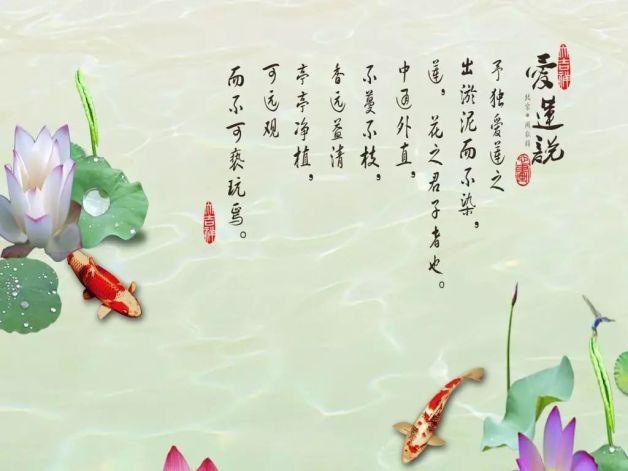 愛蓮說
北宋·周敦颐
予独爱莲之
出淤泥而不染，
莲，花之君子者也。
中通外直，
不蔓不枝，
香远益清
亭亭净植，
可远观
而不可亵玩焉。